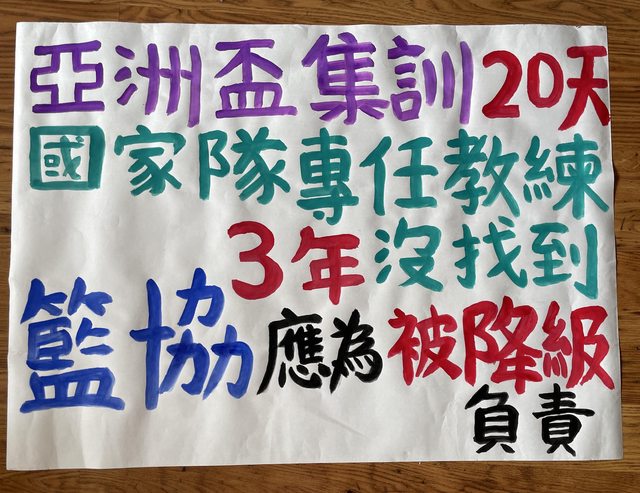 亞洲盃集訓20天
國家隊專任教練
3年沒找到
籃協應為被降級
負責